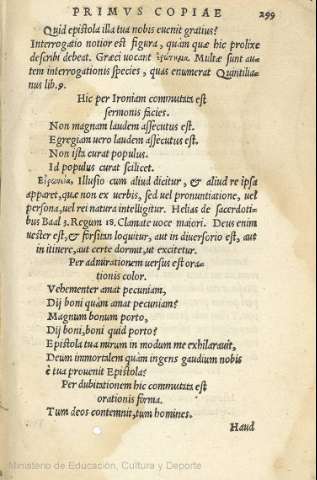 PRIMVS COPIAE 299
Quid epistola illa tua nobis euenit gratius?
Interrogatio notior est figura, quàm quae hic prolixe
describi debeat. Graeci vocant ἐρώτημα. Multae sunt au=
tem interrogationis species, quas enumerat Quintilia=
nus lib.9.
Hic per Ironiam commutata est
sermonis facies.
Non magnam laudem assecutus est.
Egregiam vero laudem assecutus est.
Non ista curat populus.
Id populus curat scilicet.
Εἰρωνεία, Illusio cum aliud dicitur, & aliud re ipsa
apparet, quae non ex verbis, sed vel pronuntiatione, vel
persona, vel rei natura intelligitur. Helias de sacerdoti=
bus Baal 3. Regum 18. Clamate voce maiori. Deus enim
vester est, & forsitan loquitur, aut in diuersorio est, aut
in itinere, aut certe dormit, ut excitetur.
Per admirationem versus est ora=
tionis color.
Vehementer amat pecuniam,
Dij boni quàm amat pecuniam?
Magnum bonum porto,
Dij boni, boni quid porto?
Epistola tua mirum in modum me exhilarauit,
Deum immortalem quàm ingens gaudium nobis
è tua prouenit Epistola?
Per dubitationem hic commutata est
orationis forma.
Tum deos contemnit, tum homines.
Haud
Ministerio de Educación, Cultura y Deporte